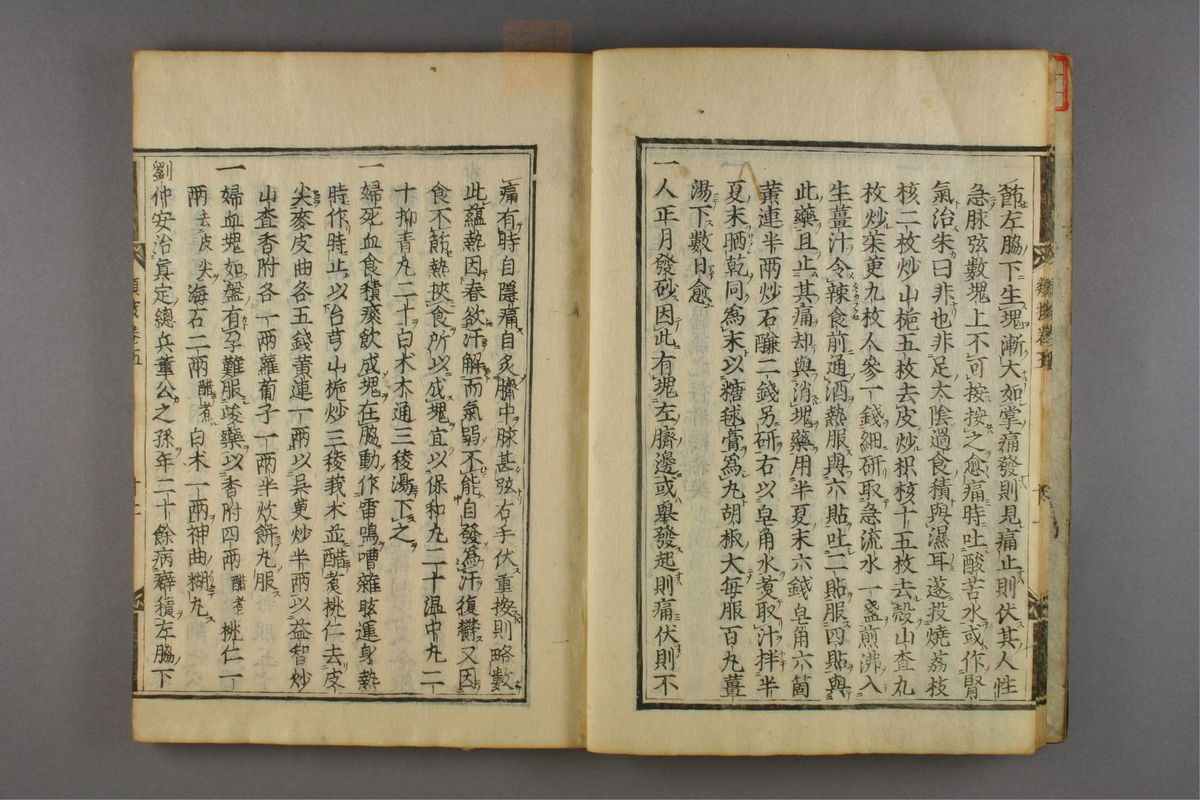 節左脇下生塊漸大如掌痛發則見痛止則伏其人性
急脉弦數塊上不可按按之愈痛時吐酸苦水或作腎
氣治朱曰非也非足太陰過食積與濕耳遂投燒荔枝
核二枚炒山梔五枚去皮炒枳核十五枚去殼山査九
枚炒茱萸九枚人參一錢細研取急流水一盞煎沸入
生薑汁令辣食前通酒熱服與六貼吐二貼服四貼與
此藥且止其痛却與消塊藥用半夏末六錢皂角六箇
黄連半兩炒石鹻二錢另研右以皂角水煑取汁拌半
夏末晒乾同爲末以糖毬膏爲丸胡椒大毎服百丸薑
湯下數日愈
一人正月發砂因此有塊左臍邊或舉發起則痛伏則不
痛有時自隱痛自炙臍中脉甚弦右手伏重按則略數
此蘊熱因春欲汗解而氣弱不能自發爲汗復鬱又因
食不節熱挾食所以成塊宜以保和丸二十温中丸二
十抑青丸二十白术木通三稜湯下之
一婦死血食積痰飲成塊在脇動作雷鳴嘈雜眩運身熱
時作時止以台芎山梔炒三稜莪术並醋煑桃仁去皮
尖麥皮曲各五錢黄連一兩以吳萸炒半兩以益智炒
山査香附各一兩蘿葡子一兩半炊餅丸服
一婦血塊如盤有孕難服峻藥以香附四兩醋煮桃仁一
兩去皮尖海石二兩醋煮白术一兩神曲糊丸
劉仲安治眞定總兵董公之孫年二十餘病癖積左脇下